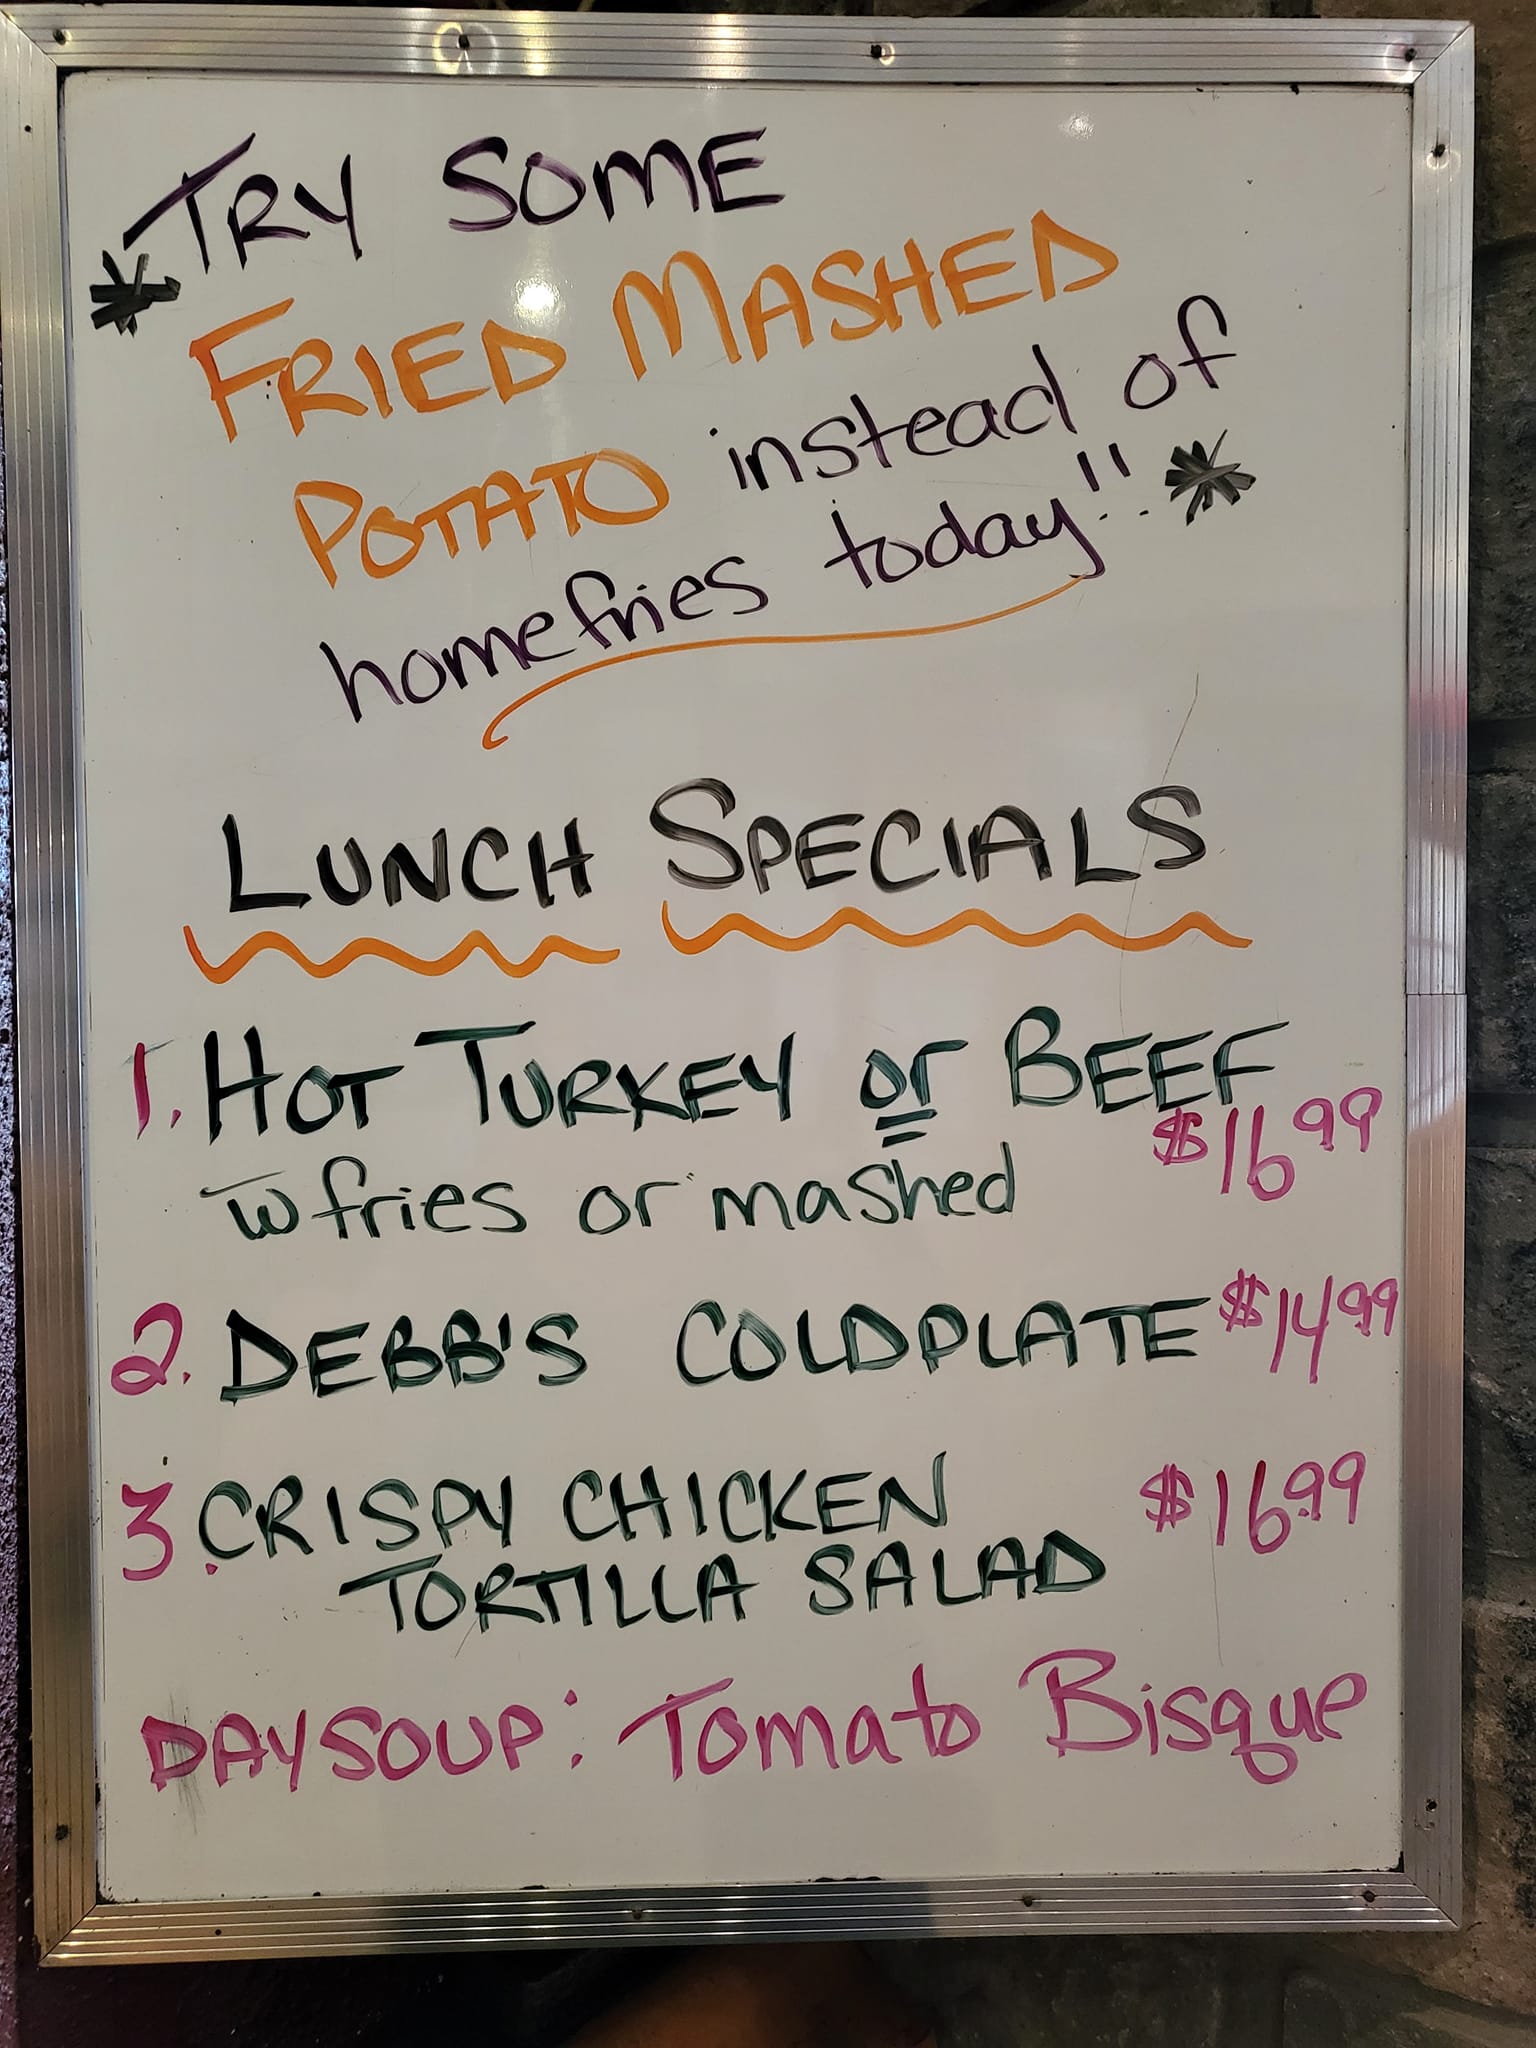 *TRY SOME
FRIED MASHED
POTATO instead of
homefries today!!*
LUNCH SPECIALS
1. HOT TURKEY or BEEF
w fries or mashed $16.99
2. DEBB'S COLDPLATE $14.99
3. CRISPY CHICKEN $16.99
TORTILLA SALAD
DAY SOUP: Tomato Bisque